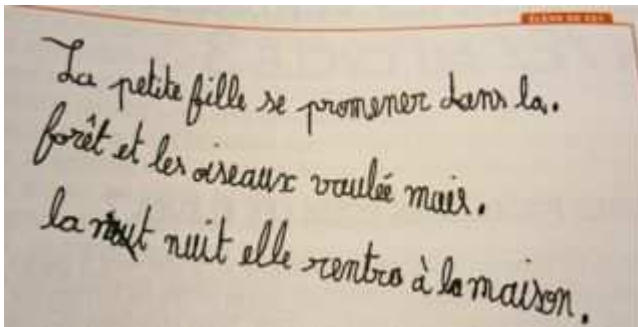 La petite fille se promener dans la.
forêt et les oiseaux vaulée mais.
la nuit elle rentra à la maison.